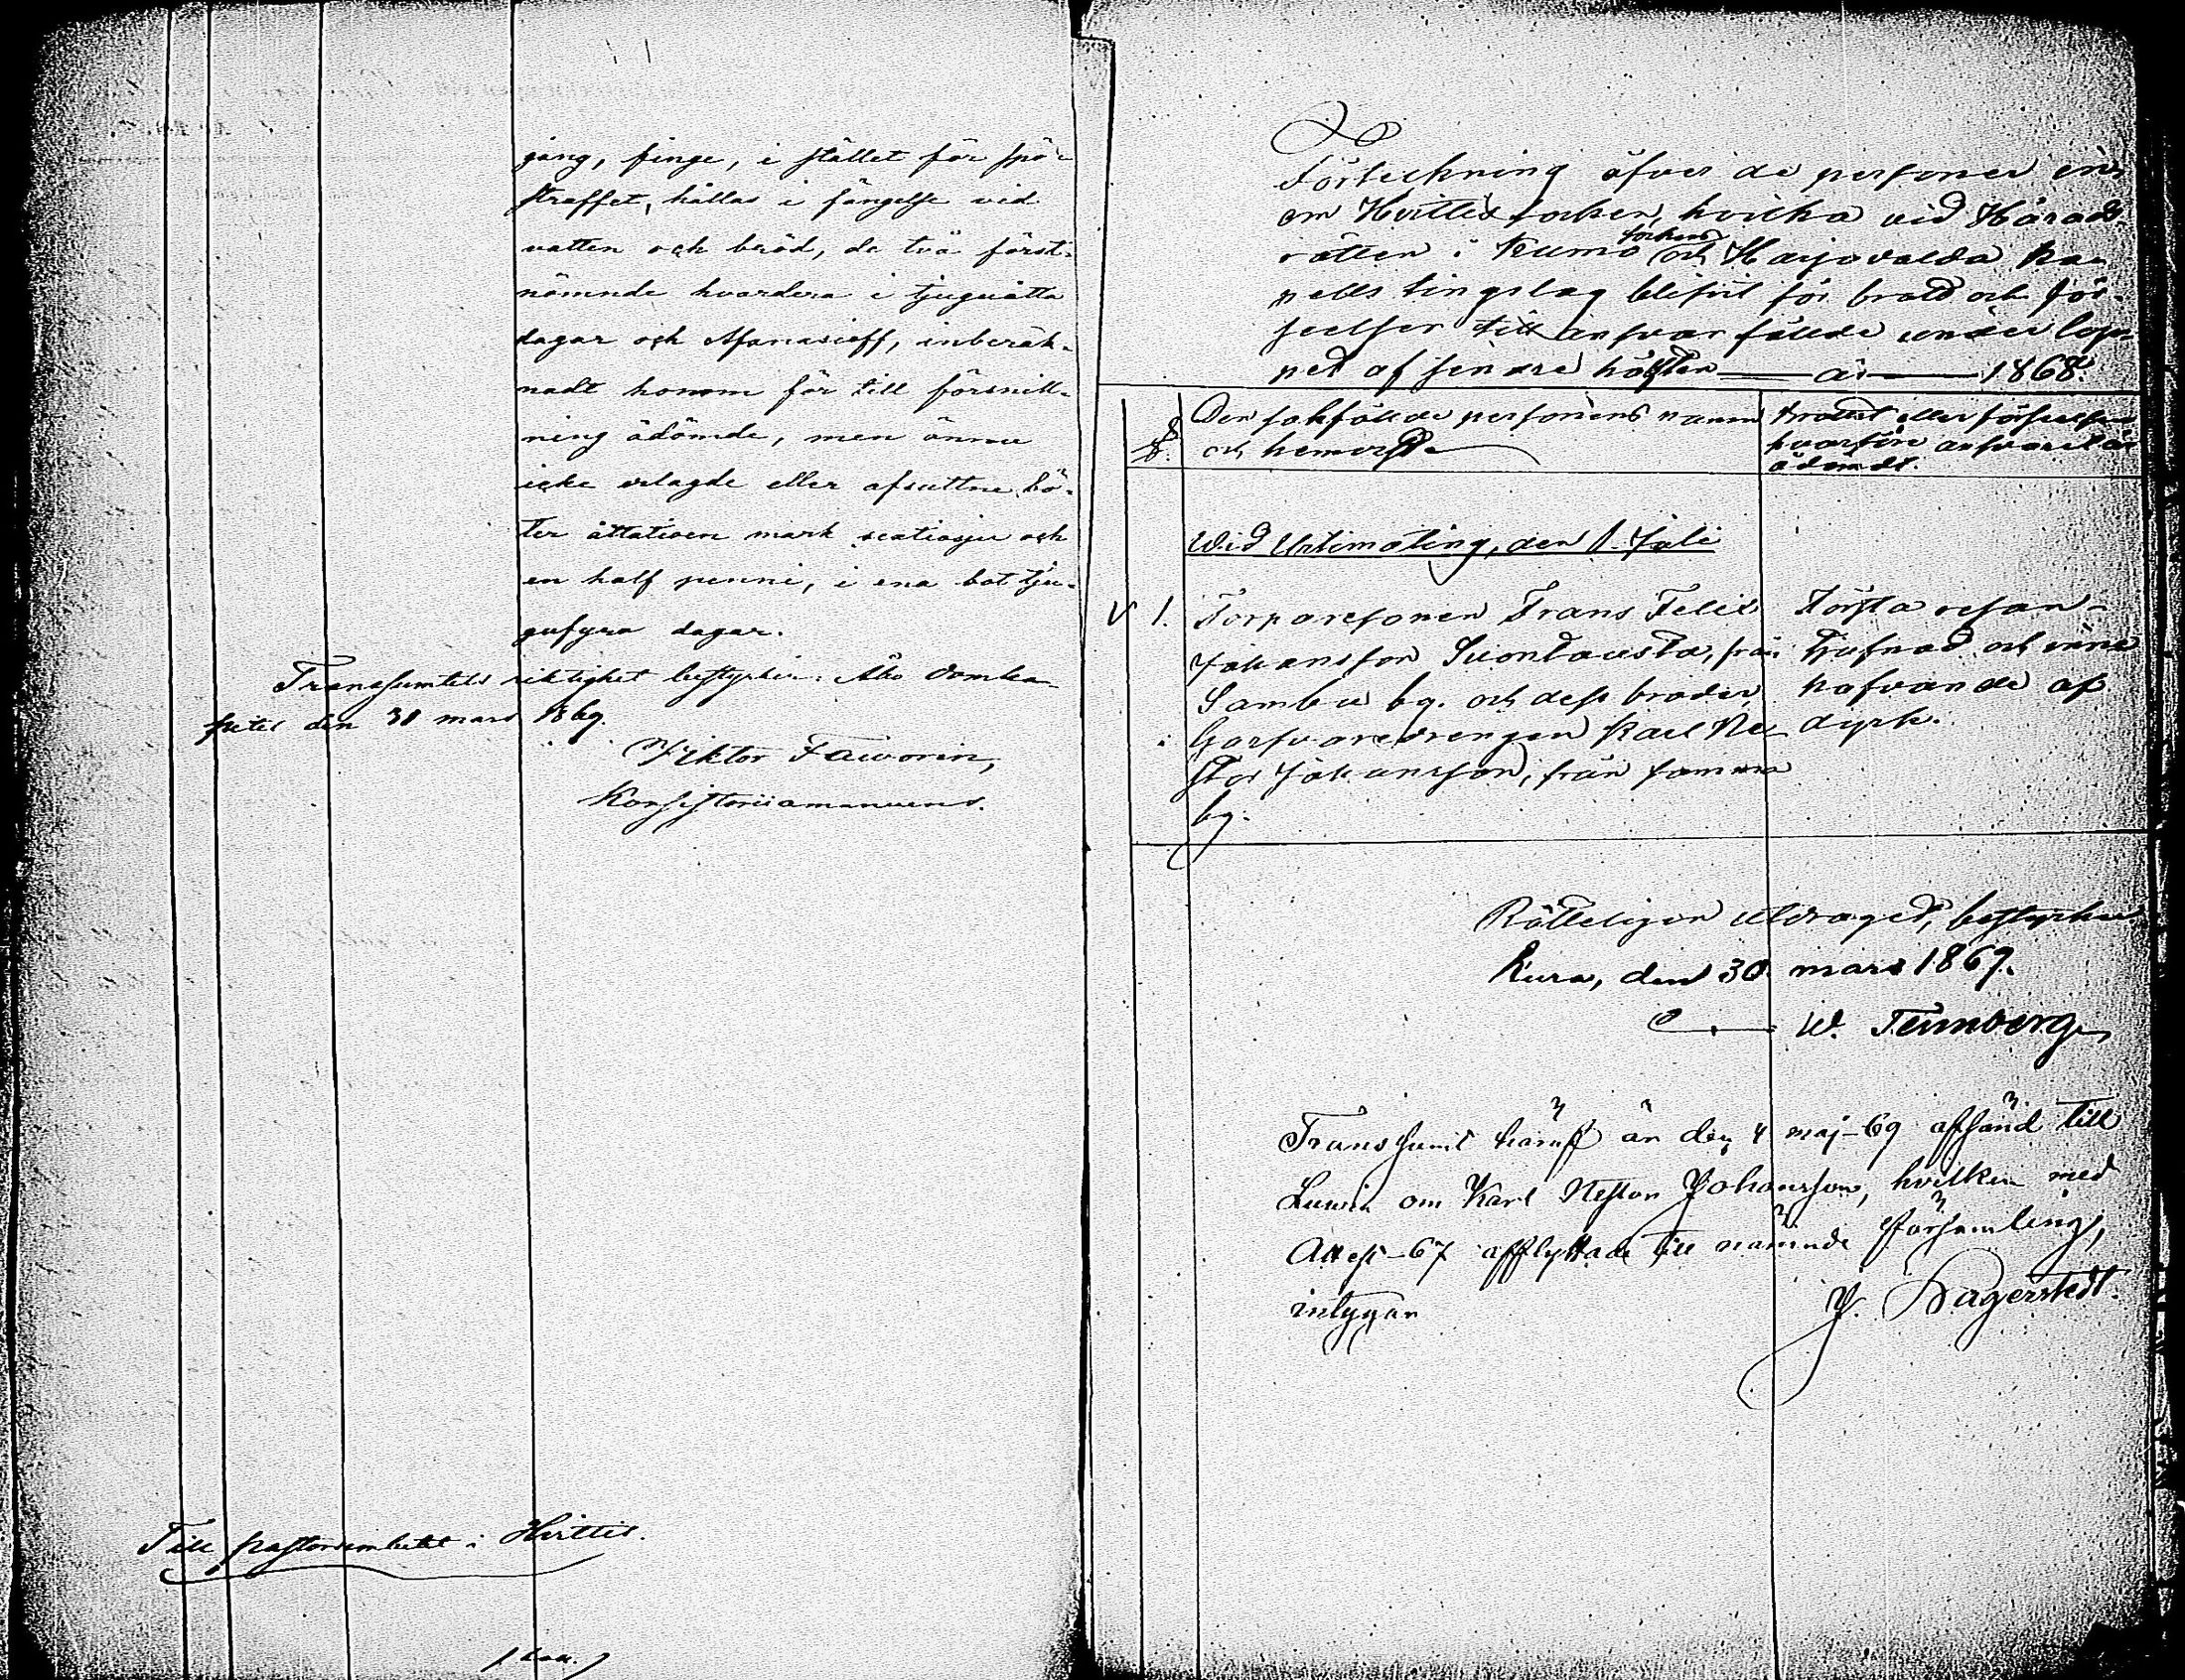 gång, finge, i stället för spö-
straffet, hållas i fängelse vid
vatten och bröd, de två först-
nämnde hvardera i tjuguåtta
dagar och Afanasieff, inberäk-
nadt honom för till försnill-
ning ådömde, men ännu
icke erlagde eller afsuttne bö-
ter åttatioen mark sextiosju och
en half penni, i ena bot tju-
gufyra dagar.
Transsumtets riktighet bestyrker. Åbo domka-
pitel den 31 mars 1869.
Viktor Faworin,
Konsistoriiamanuens.
Till pastorsembetet i Hvittis.
Förteckning öfver de personer in-
om Hvittis socken, hvilka vid Härads
rätten i Kumo sockens och Harjavalda ka-
pells tingslag blifvit för brott och för-
seelser till ansvar fällde under lop-
pet af sednare hälften — år — 1868.
Den sakfällde personens namn
och hemvist
Brottet eller förseelsen
hvarföre ansvaret är
ådömdt.
Wid Urtimating, den 1. Juli
V 1. Torparesonen Frans Felix
Johansson Suontausta, från
Sambu by. och dess broder,
Garfvaredrengen Karl Ne-
stor Johansson, från samma
by.
Första resan
tjufnad och inne
hafvande af
dyrk.
Rätteligen utdraget, bestyrker
Kura, den 30 mars 1869.
W. Tennberg
Transsumt häraf är den 4 maj -69 afsänd till
Luvia om Karl Nestor Johansson, hvilken med
Attest -67 afflyttade till nämnde församling,
intygar
J. Wagerstedt.